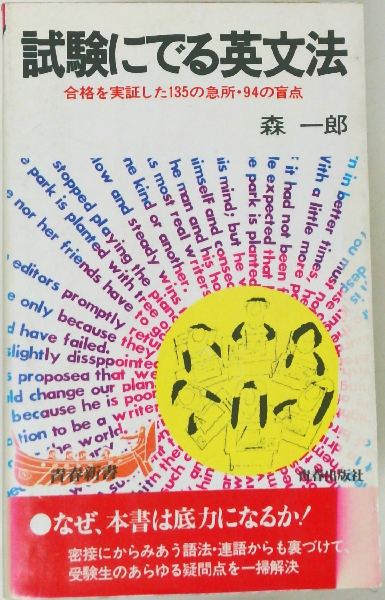 試験にでる英文法
合格を実証した135の急所・94の盲点
森 一郎
n in better times
with a little more
it had not been
e expected that
e park is planted
is mind; but he
imself and conse
he man and his ho
s most real writers
ne kind or another.
low and steady wins
stopped playing the piano
e park is planted with tree
e nor her friends have to
editors promptly
e only because they
d have failed.
slightly disappointed
s proposed that we
ld change our plan
because he is poor
tion to be a writer
the world.
青春新書
青春出版社
●なぜ、本書は底力になるか!
密接にからみあう語法・連語からも裏づけて、
受験生のあらゆる疑問点を一掃解決